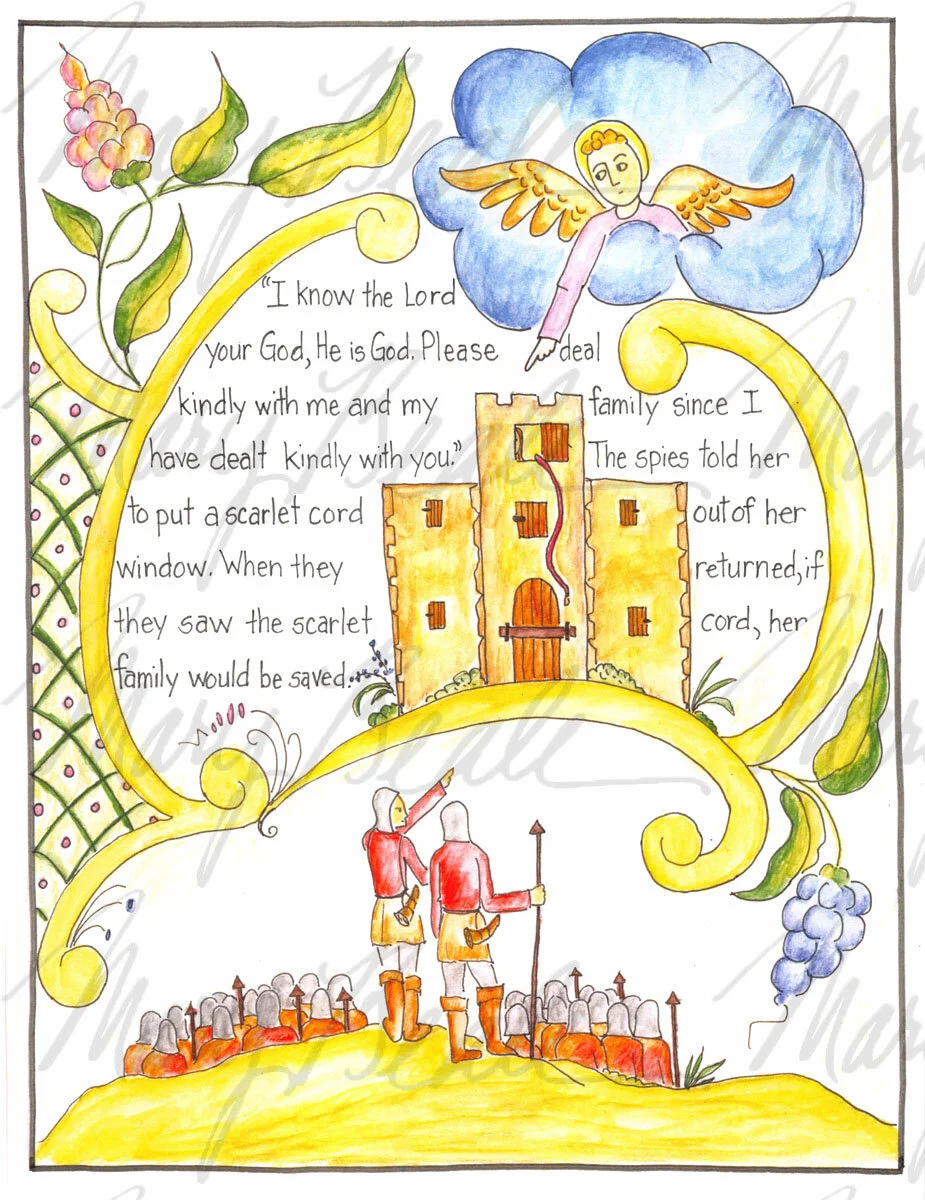 "I know the Lord
your God, He is God. Please deal
kindly with me and my family since I
have dealt kindly with you." The spies told her
to put a scarlet cord out of her
window. When they returned, if
they saw the scarlet cord, her
family would be saved.
Mary Beale